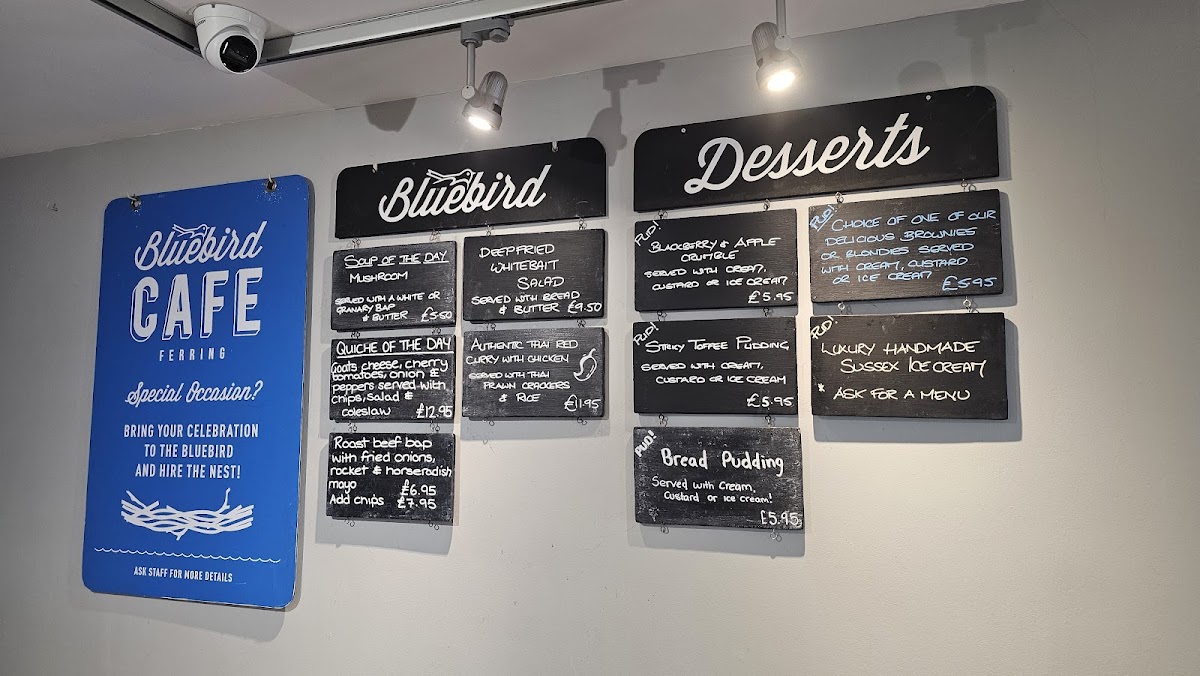 Bluebird
CAFE
FERRING
Special Occasion?
BRING YOUR CELEBRATION
TO THE BLUEBIRD
AND HIRE THE NEST!
ASK STAFF FOR MORE DETAILS
Bluebird
SOUP OF THE DAY
MUSHROOM
SERVED WITH A WHITE OR
GRANARY BAP
& BUTTER £5.50
QUICHE OF THE DAY
Goats cheese, cherry
tomatoes, onion &
peppers served with
chips, salad &
coleslaw £12.95
Roast beef bap
with fried onions,
rocket & horseradish
mayo £6.95
Add chips £7.95
DEEPFRIED
WHITEBAIT
SALAD
SERVED WITH BREAD
& BUTTER £9.50
AUTHENTIC THAI RED
CURRY WITH CHICKEN
SERVED WITH THAI
PRAWN CRACKERS
& RICE £11.95
Desserts
PUD!
BLACKBERRY & APPLE
CRUMBLE
SERVED WITH CREAM,
CUSTARD OR ICE CREAM
£5.95
PUD!
STICKY TOFFEE PUDDING
SERVED WITH CREAM,
CUSTARD OR ICE CREAM
£5.95
PUD!
Bread Pudding
Served with Cream,
Custard or ice cream!
£5.95
PUD!
CHOICE OF ONE OF OUR
DELICIOUS BROWNIES
OR BLONDIES SERVED
WITH CREAM, CUSTARD
OR ICE CREAM £5.95
PUD!
LUXURY HANDMADE
SUSSEX ICE CREAM
* ASK FOR A MENU